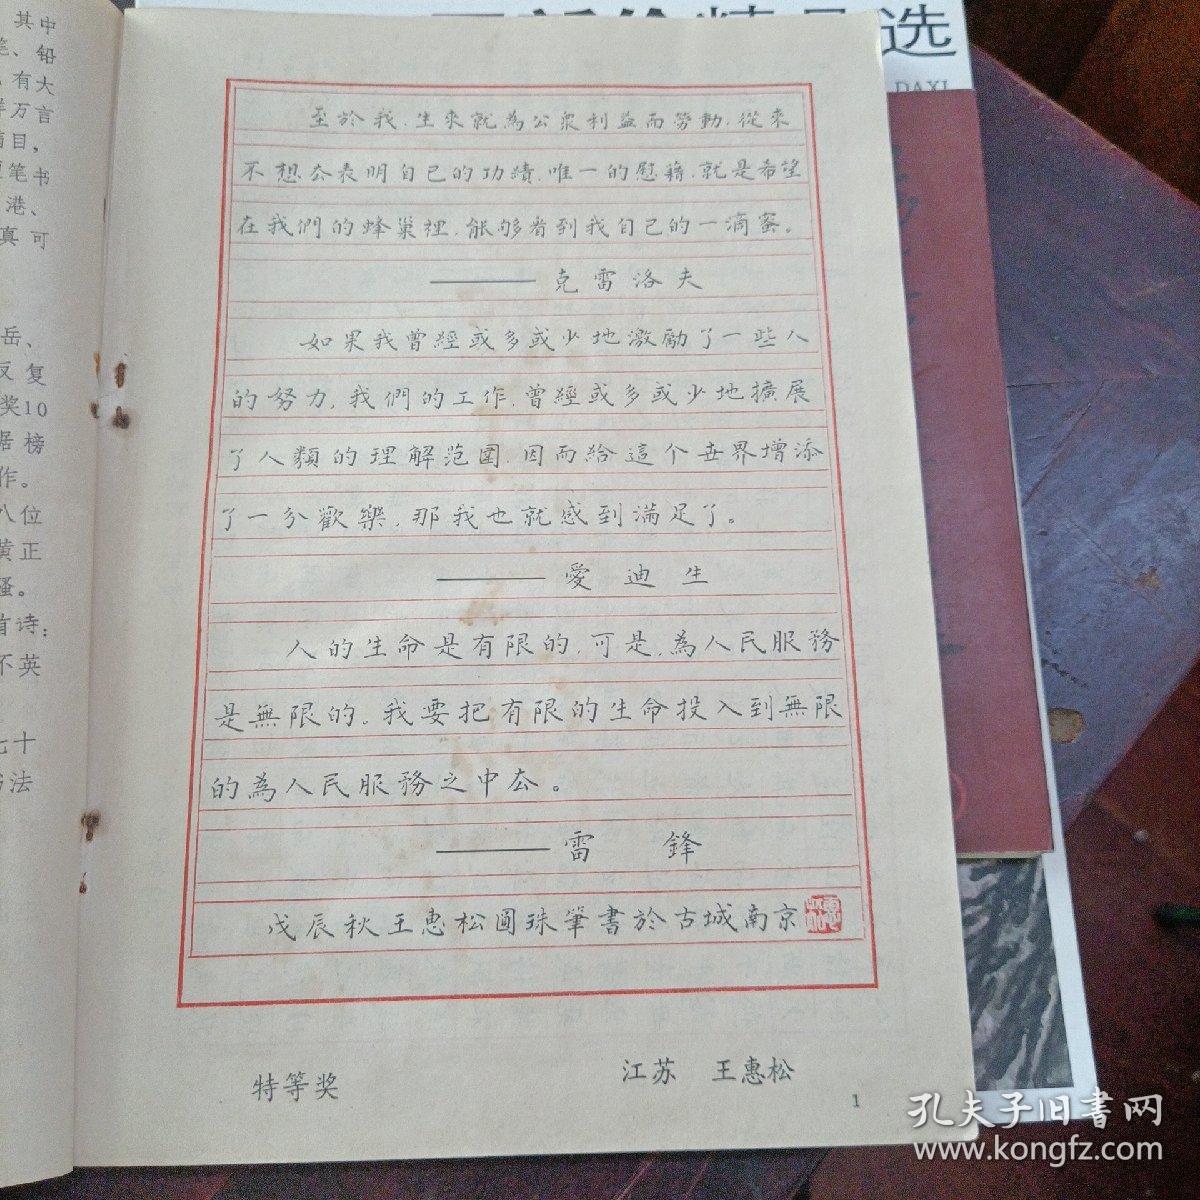 其中
笔、铅
有大
万言
篇目,
笔书
港、
真可
岳、
反复
奖10
据榜
作。
八位
黄正
骚。
首诗:
不英
七十
书法
至於我,生來就為公眾利益而勞動,從來
不想去表明自己的功績,唯一的慰藉,就是希望
在我們的蜂巢裡,能够看到我自己的一滴蜜。
——克雷洛夫
如果我曾經或多或少地激勵了一些人
的努力,我們的工作,曾經或多或少地擴展
了人類的理解范圍,因而給這个世界增添
了一分歡樂,那我也就感到滿足了。
——愛迪生
人的生命是有限的,可是,為人民服務
是無限的,我要把有限的生命投入到無限
的為人民服務之中去。
——雷 鋒
戊辰秋王惠松圓珠筆書於古城南京
特等奖
江苏 王惠松
1
选
DAXI
孔夫子旧书网
www.kongfz.com